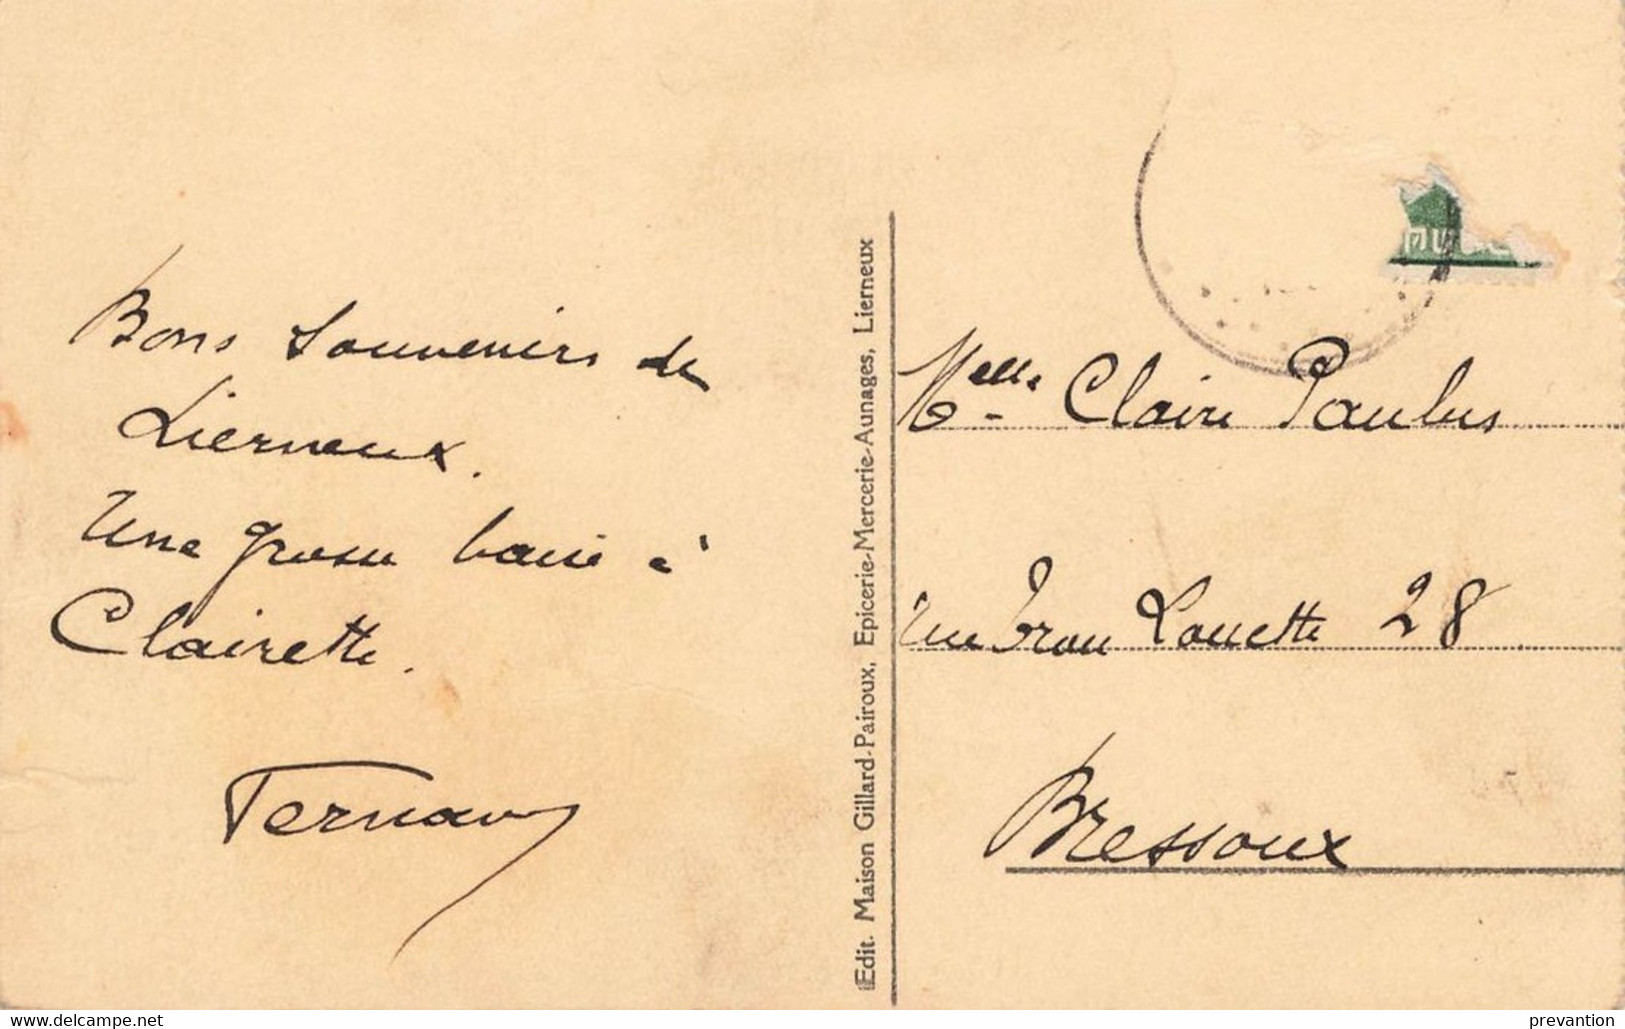 Bons souvenirs de
Lierneux.
Une grosse baise à
Clairette.
Fernand
Edit. Maison Gillard-Pairoux, Epicerie-Mercerie-Aunages, Lierneux
Melle Claire Paulus
rue Trou Louette 28
Bressoux
www.delcampe.net
prevantion